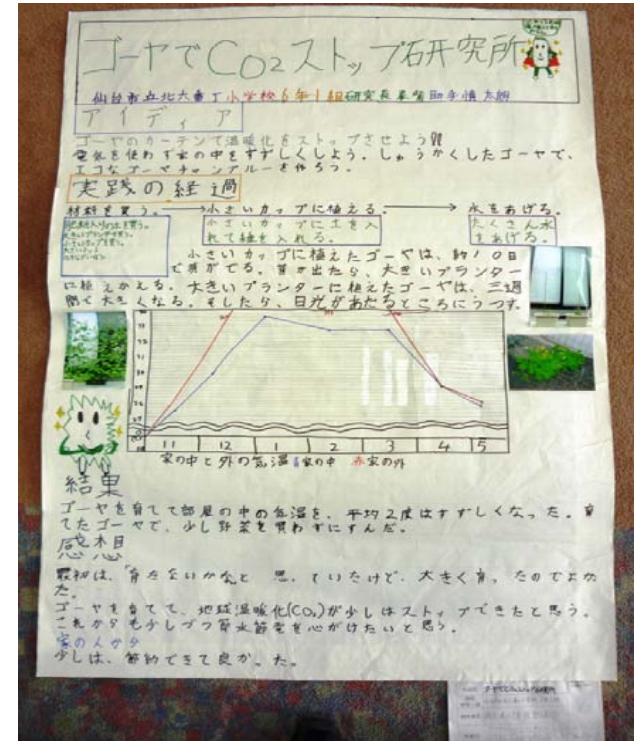 ゴーヤでCO2ストップ研究所
仙台市立北六番丁小学校6年1組研究長 助手慎太朗
アイディア
ゴーヤのカーテンで温暖化をストップさせよう!!
電気を使わず家の中をすずしくしよう。しゅうかくしたゴーヤで、
エコなゴーヤチャンプルーを作ろう。
実践の経過
材料を買う。→小さいカップに植える。→水をあげる。
小さいカップに土を入
れて種を入れる。
たくさん水
をあげる。
小さいカップに植えたゴーヤは、約10日
で芽がでる。芽が出たら、大きいプランター
に植えかえる。大きいプランターに植えたゴーヤは、三週
間で大きくなる。そしたら、日光があたるところにうつす。
11 12 1 2 3 4 5
家の中と外の気温 青家の中 赤家の外
結果
ゴーヤを育てて部屋の中の気温を、平均2度はすずしくなった。育
てたゴーヤで、少し野菜を買わずにすんだ。
感想
最初は、「育たないかな」と思っていたけど、大きく育ったのでよかっ
た。
ゴーヤを育てて、地球温暖化(CO2)が少しはストップできたと思う。
これからも少しづつ節水節電を心がけたいと思う。
家の人から
少しは、節約できて良かった。